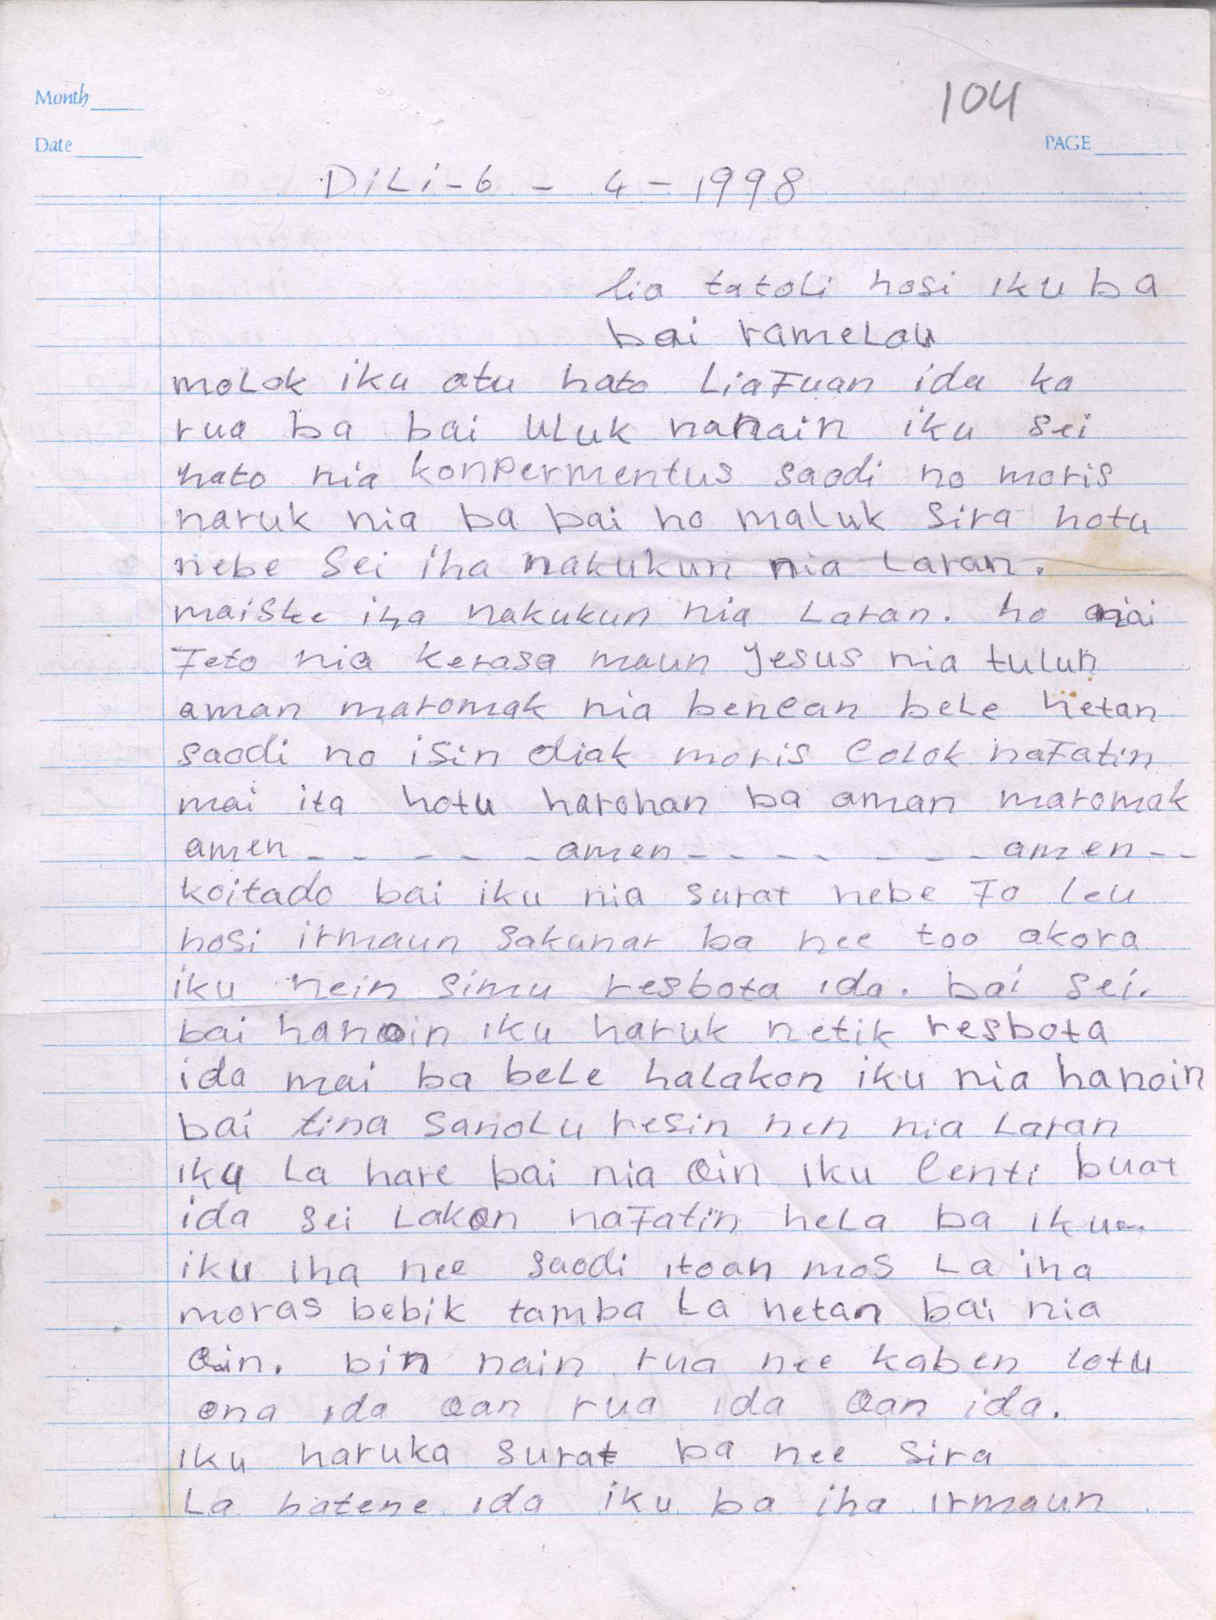 Month
104
Date
PAGE
DiLi - 6 - 4 - 1998
lia tatoli hosi iku ba
bai rameLau
moLok iku atu hato LiaFuan ida ka
rua ba bai uluk nanain iku sei
hato nia konpermentus saodi no moris
naruk nia ba bai ho maluk sira hotu
nebe sei iha nakukun nia Laran.
maiske iha nakukun nia Laran. ho
Feto nia kerasa maun Jesus nia tulun
aman maromak nia benean beLe hetan
saodi no isin diak moris loLok naFatin
mai ita hotu harohan ba aman maromak
amen - - - - - amen - - - - - - - amen - -
koitado bai iku nia surat nebe Fo leu
hosi irmaun sakunar ba nee too akora
iku hein simu resbota ida. bai sei.
bai hanoin iku haruk netik resbota
ida mai ba beLe haLakon iku nia hanoin
bai tina sanoLu resin nen nia Laran
iku La hare bai nia oin iku lenti buat
ida sei Lakon naFatin heLa ba iku
iku iha nee saodi itoan mos La iha
moras bebik tamba La hetan bai nia
oin. bin nain rua nee kaben lotu
ona ida oan rua ida oan ida.
iku haruka surat ba nee sira
La hatene ida iku ba iha irmaun